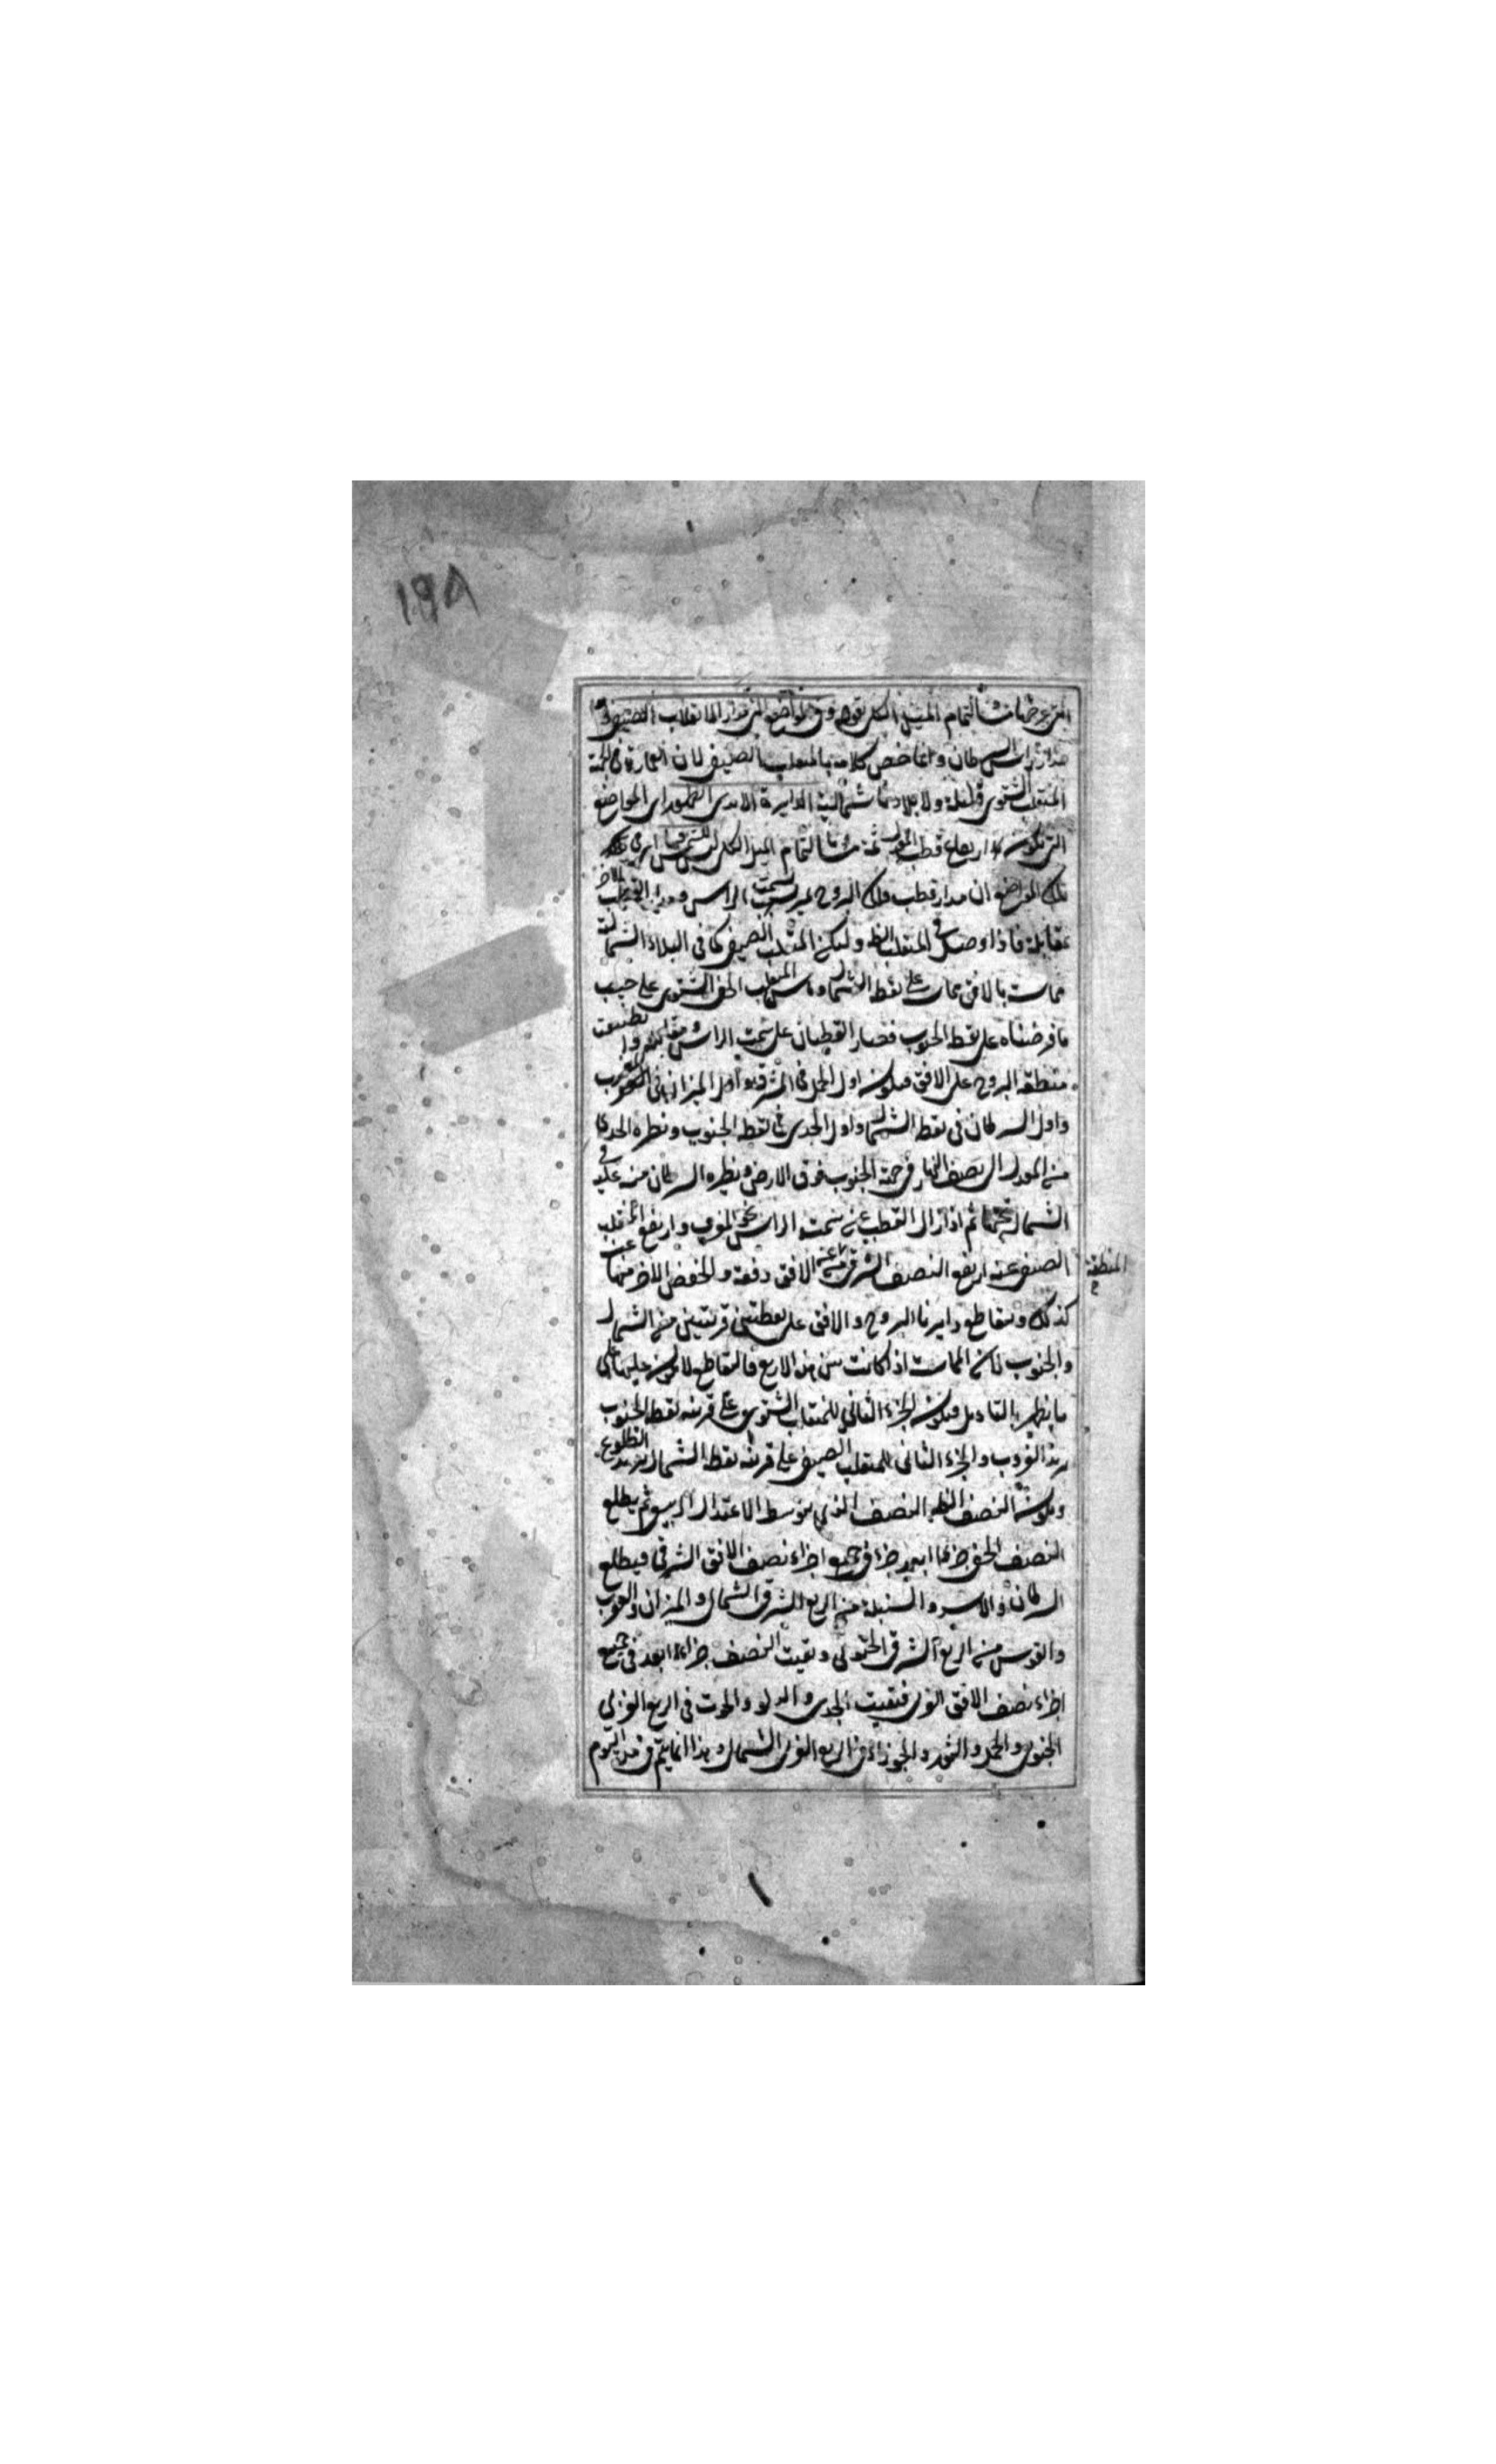 ١٩٨
التي عرضها مساو لتمام الميل الكلي بقوله وفي المواضع التي مدار المنقلب الصيفي و
مدار راس السرطان وانما خص كلامه بالمنقلب الصيفي لان العمارة في الجهة
المنقلب الشتوي قليلة ولا بلادنا شمالية الدايرة الابدي الظهور اي المواضع
التي يكون ارتفاع قطب المعدل ثمة مساويا لتمام الميل الكلي
تلك المواضع ان مدار قطب فلك البروج يمر بسمت الراس ومدار القطب الاخر
بمقابلة فاذا وصل المنقلب الظاهر وليكن المنقلب الصيفي كما في البلاد الشمالية
مماسة بالافق مماسة على نقطة الشمال المنقلب الخفي الشتوي على حسب
ما فرضناه على نقطة الجنوب فصار القطبان على سمت الراس ومقابله و تنطبق
منطقة البروج على الافق فيكون اول الحمل في المشرق واول الميزان في المغرب
واول السرطان في نقطة الشمال واول الجدي في نقطة الجنوب ونظيره الجدي
من المعدل الى نصف النهار في جهة الجنوب فوق الارض ونظيره السرطان منه عليه في
الشمال تحتها ثم اذا زال القطب عن سمت الراس نحو المغرب وارتفع
الصيفي عنه ارتفع النصف الشرقي من المنطقة عن الافق دفعة وانخفض الاخر منها
كذلك وتتقاطع دايرتا البروج والافق على نقطتين قريبتين من الشمال
والجنوب لان المماسة اذا كانت بين هذه الاربع فالتقاطع لا يكون عليها على
ما يظهر بالتامل فيكون الجزء الثاني للمنقلب الشتوي على قرب نقطة الجنوب
يريد الغروب والجزء الثاني للمنقلب الصيفي على قرب نقطة الشمال يريد الطلوع
ويكون النصف الظاهر النصف الذي يتوسط الاعتدال الربيعي ثم يطلع
النصف الخفي جزءا بعد جزء في جميع اجزاء نصف الافق الشرقي فيطلع
السرطان والاسد والسنبلة من الربع الشرقي الشمالي والميزان والعقرب
والقوس من الربع الشرقي الجنوبي ويغيب النصف جزءا بعد في جميع
اجزاء نصف الافق الغربي فيغيب الجدي والدلو والحوت في الربع الغربي
الجنوبي والحمل والثور والجوزاء في الربع الغربي الشمالي وهذا انما يتم في مدة اليوم